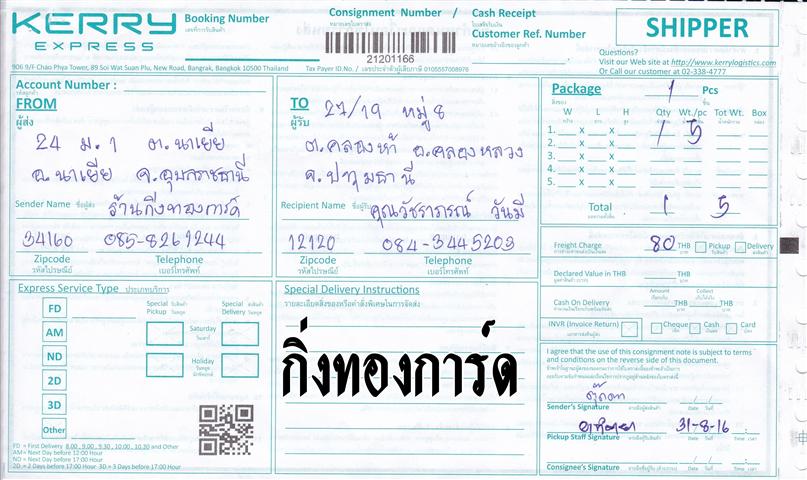 KERRY EXPRESS
Booking Number
เลขที่การรับสินค้า
Consignment Number /
หมายเลขใบตราส่ง
Cash Receipt
ใบเสร็จรับเงิน
Customer Ref. Number
หมายเลขอ้างอิงของลูกค้า
21201166
SHIPPER
906 9/F Chao Phya Tower, 89 Soi Wat Suan Plu, New Road, Bangrak, Bangkok 10500 Thailand
Tax Payer ID.No. / เลขประจำตัวผู้เสียภาษี 0105557008976
Questions?
Visit our Web site at http://www.kerrylogistics.com
Or Call our customer at 02-338-4777
Account Number :
รหัสลูกค้า
FROM
ผู้ส่ง
24 ม.1 ต.นาเยีย
อ.นาเยีย จ.อุบลราชธานี
Sender Name ชื่อผู้ส่ง
ร้านกิ่งทองการ์ด
34160 085-8261244
Zipcode Telephone
รหัสไปรษณีย์ เบอร์โทรศัพท์
TO
ผู้รับ
27/19 หมู่ 8
ต.คลองห้า อ.คลองหลวง
จ.ปทุมธานี
Recipient Name ชื่อผู้รับ
คุณวัชราภรณ์ วันมี
12120 084-3445203
Zipcode Telephone
รหัสไปรษณีย์ เบอร์โทรศัพท์
Package 1 Pcs
สิ่งของ ชิ้น
W L H Qty Wt./pc Tot Wt. Box
1. x x 1 5
2. x x
3. x x
4. x x
5. x x
Total 1 5
Freight Charge 80 THB Pickup Delivery
Declared Value in THB
Amount Collect
Cash On Delivery THB THB
INVR (Invoice Return) Cheque Cash Card
Express Service Type ประเภทบริการ
Special Pickup Special Delivery
FD
AM
ND
2D
3D
Other
Saturday
วันเสาร์
Holiday
วันหยุด
FD = First Delivery 8.00, 9.00, 9.30, 10.00, 10.30 and Other
AM= Next Day before 12:00 Hour
ND = Next Day before 17:00 Hour
2D = 2 Days before 17:00 Hour 3D = 3 Days before 17:00 Hour
Special Delivery Instructions
รายละเอียดสิ่งของหรือคำสั่งพิเศษในการจัดส่ง
กิ่งทองการ์ด
I agree that the use of this consignment note is subject to terms
and conditions on the reverse side of this document.
Sender's Signature ลายมือชื่อผู้ส่งสินค้า Date วันที่
31-8-16
Pickup Staff Signature Date วันที่ Time เวลา
Consignee's Signature Date วันที่ Time เวลา